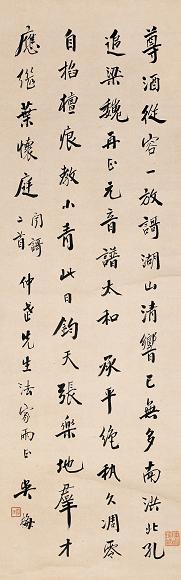 尊酒從容一放謌湖山清響已無多南洪北孔
追梁魏再正元音譜太和承平絕埶久凋零
自掐檀痕教小青此日鈞天張樂地羣才
應繼葉懷庭聞謌二首仲先生法家兩正吳梅